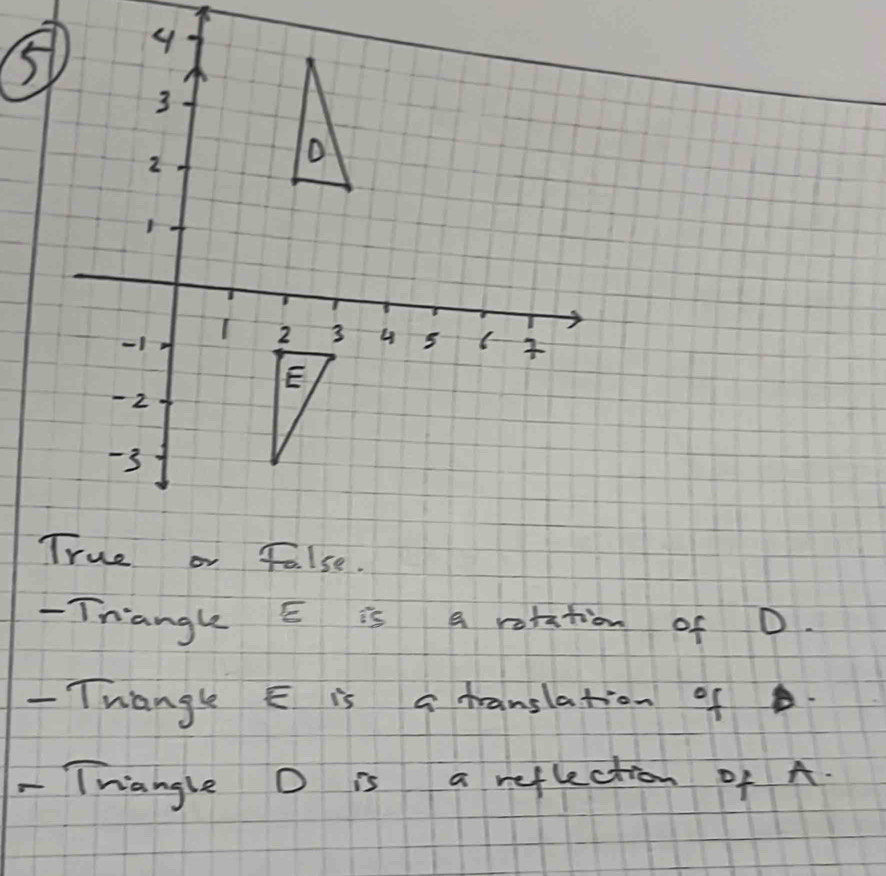 5
4
3
D
2
1
1 2 3 4 5 6 7
-1
E
-2
-3
True or False.
- Triangle E is a rotation of D.
- Triangle E is a translation of D.
- Triangle D is a reflection of A.